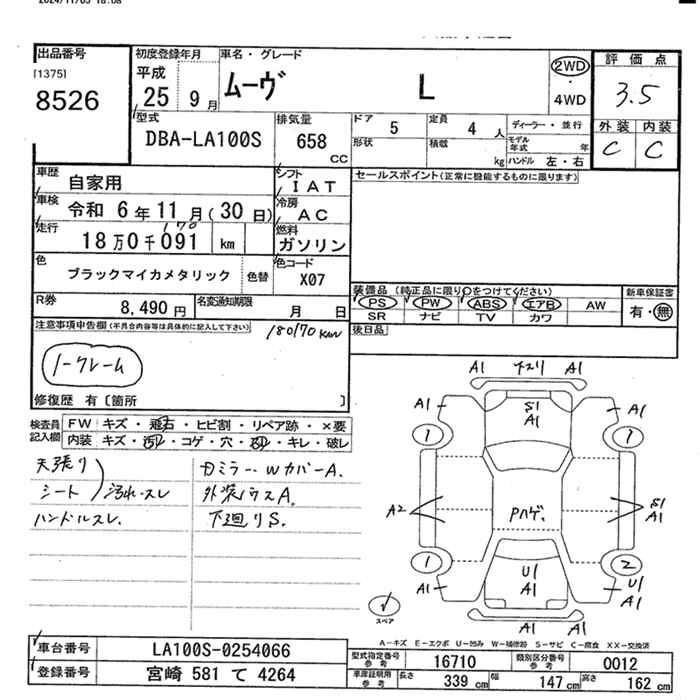 2024/11/05 18:08
出品番号
[1375]
8526
初度登録年月
平成
25 9月
車名・グレード
ムーヴ L
2WD
・
4WD
評価点
3.5
外装 内装
C C
型式
DBA-LA100S
排気量
658
CC
ドア 5
定員 4 人
ディーラー・並行
形状
積載 kg
モデル年式 年
ハンドル 左・右
車歴 自家用
シフト
IAT
車検 令和 6年11月(30日)
冷房
AC
走行 18万0千091 km
170
燃料
ガソリン
色 ブラックマイカメタリック 色替
色コード
X07
R券 8,490円
名変通知期限 月 日
セールスポイント(正常に機能するものに限ります)
装備品(純正品に限り○をつけてください)
PS PW ABS エアB AW
SR ナビ TV カワ
新車保証書
有・無
後日品
注意事項申告欄(不具合内容等は具体的に記入して下さい)
180170km
ノークレーム
修復歴 有〔箇所 〕
検査員記入欄
FW キズ・飛石・ヒビ割・リペア跡・×要
内装 キズ・汚レ・コゲ・穴・スレ・キレ・破レ
天張り
シート 汚れ・スレ
ハンドルスレ.
ミラー・WカバーA.
外装ウスA.
下廻りS.
A1 A1
A1 S1 A1 A1
1 1
A2 Pハゲ. S1 A1
1 2
A1 U1 A1 U1 A1
A1 A1
スペア
A－キズ E－エクボ U－凹み W－補修跡 S－サビ C－腐食 XX－交換済
車台番号 LA100S-0254066
登録番号 宮崎 581 て 4264
型式指定番号 参考 16710
類別区分番号 参考 0012
車庫証明用 参考 長さ 339 cm 幅 147 cm 高さ 162 cm